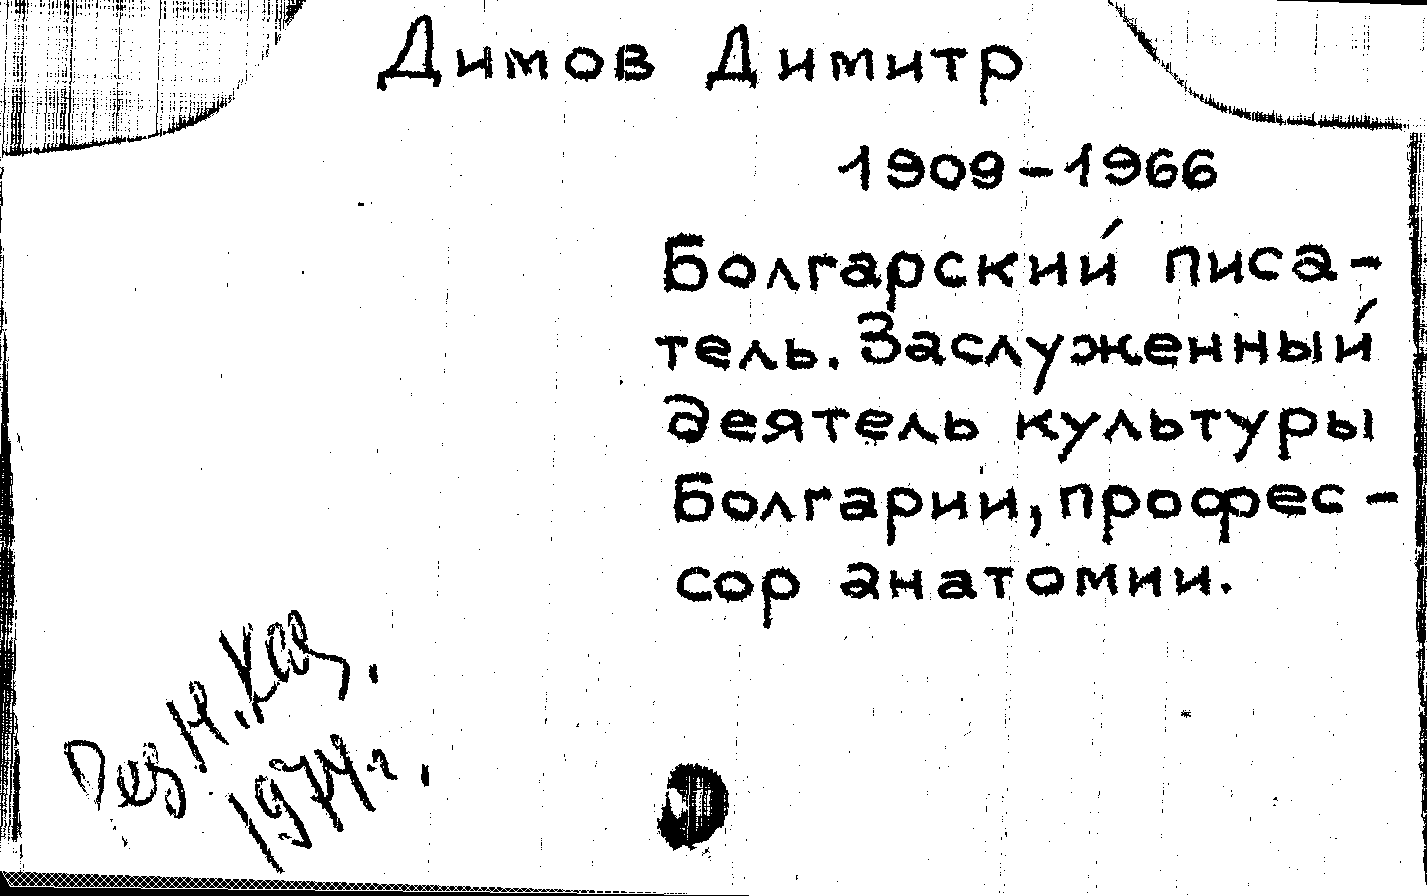 Димов Димитр
1909-1966
Болгарский писа-
тель. Заслуженный
деятель культуры
Болгарии, профес-
сор анатомии.
Рез Н. Каз,.
1974 г.